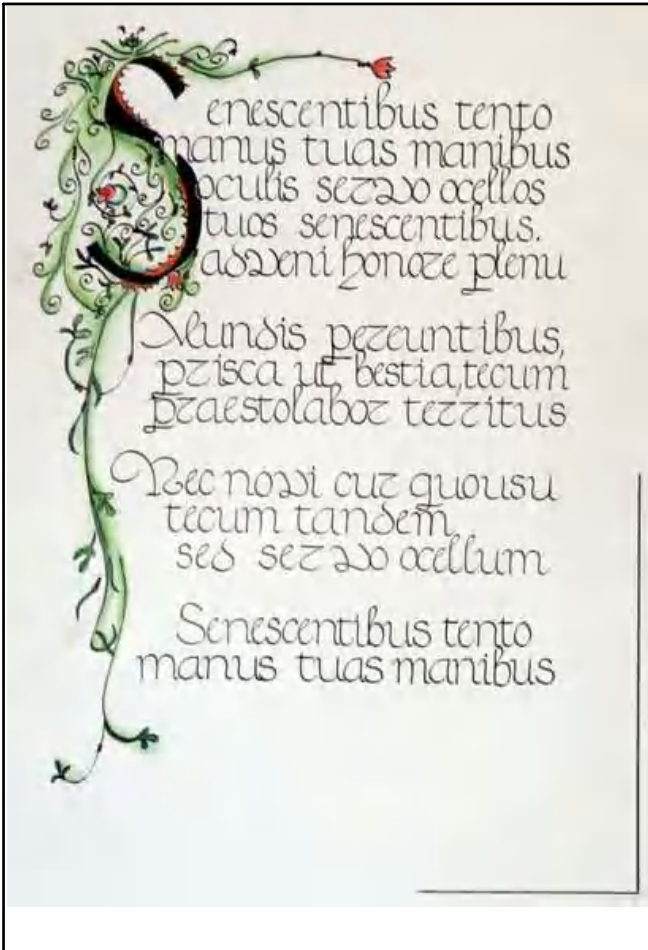 Senescentibus tento
manus tuas manibus
oculis servo ocellos
tuos senescentibus.
adveni honore plenu
Mundis pereuntibus,
prisca ut bestia, tecum
praestolabor territus
Nec novi cur quousu
tecum tandem
sed servo ocellum
Senescentibus tento
manus tuas manibus